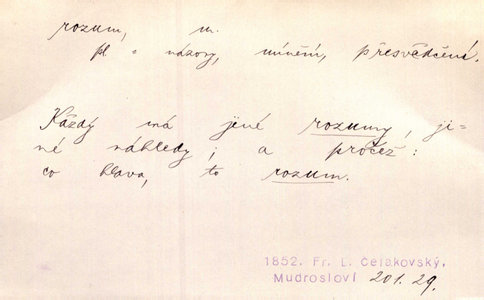 rozum, m.
pl = názory, mínění, přesvědčení.
Každý má jiné rozumy, ji=
né náhledy; a pročež:
co hlava, to rozum.
1852. Fr. L. Čelakovský,
Mudrosloví 201.29.